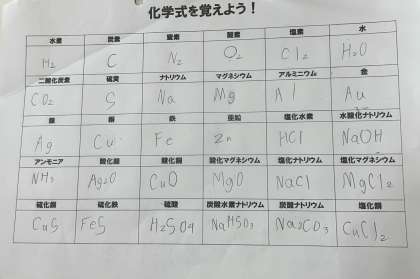 化学式を覚えよう！
水素 炭素 窒素 酸素 塩素 水
H₂ C N₂ O₂ Cl₂ H₂O
二酸化炭素 硫黄 ナトリウム マグネシウム アルミニウム 金
CO₂ S Na Mg Al Au
銀 銅 鉄 亜鉛 塩化水素 水酸化ナトリウム
Ag Cu Fe Zn HCl NaOH
アンモニア 酸化銀 酸化銅 酸化マグネシウム 塩化ナトリウム 塩化マグネシウム
NH₃ Ag₂O CuO MgO NaCl MgCl₂
硫化銅 硫化鉄 硫酸 炭酸水素ナトリウム 炭酸ナトリウム 塩化銅
CuS FeS H₂SO₄ NaHSO₃ Na₂CO₃ CuCl₂